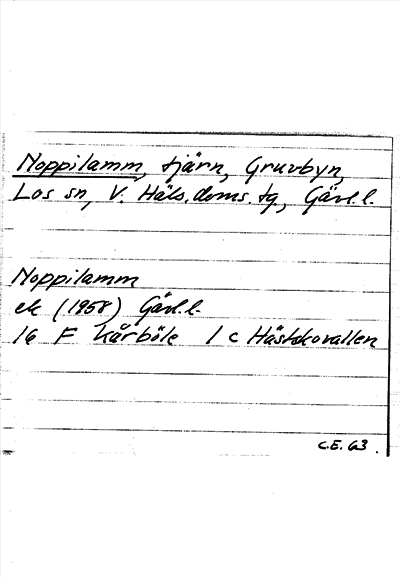 Noppilamm, tjärn, Gruvbyn,
Los sn, V. Häls. doms. tg, Gävl. l.
Noppilamm
ek (1958) Gävl. l.
16 F Kårböle 1 c Hästskovallen
C.E. 63.